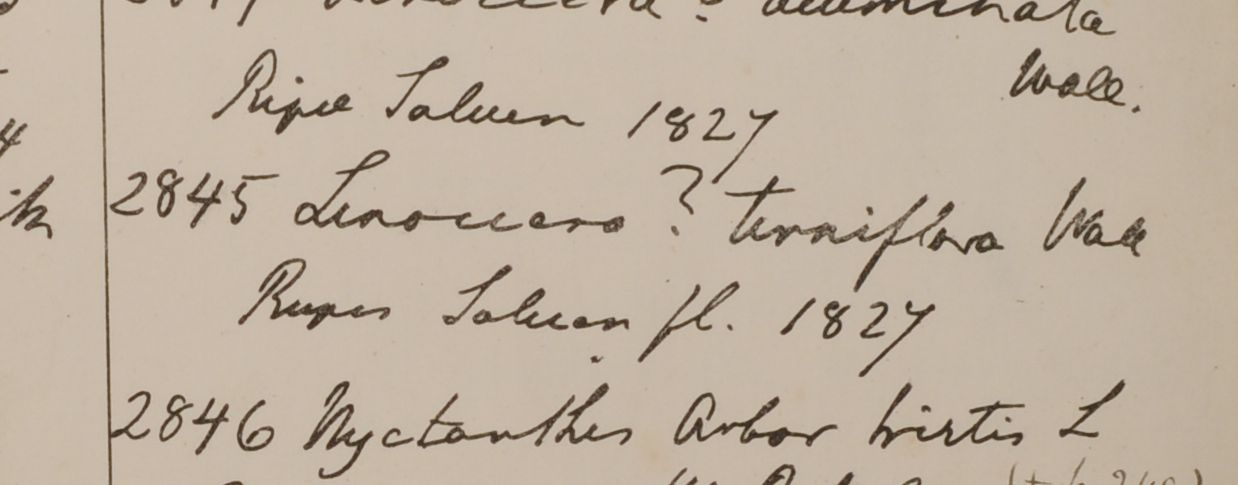 Linociera? acuminata
Wall.
Ripae Saluen 1827
2845 Linociera ? terniflora Wall
Rupes Saluen fl. 1827
2846 Nyctanthes Arbor tristis L